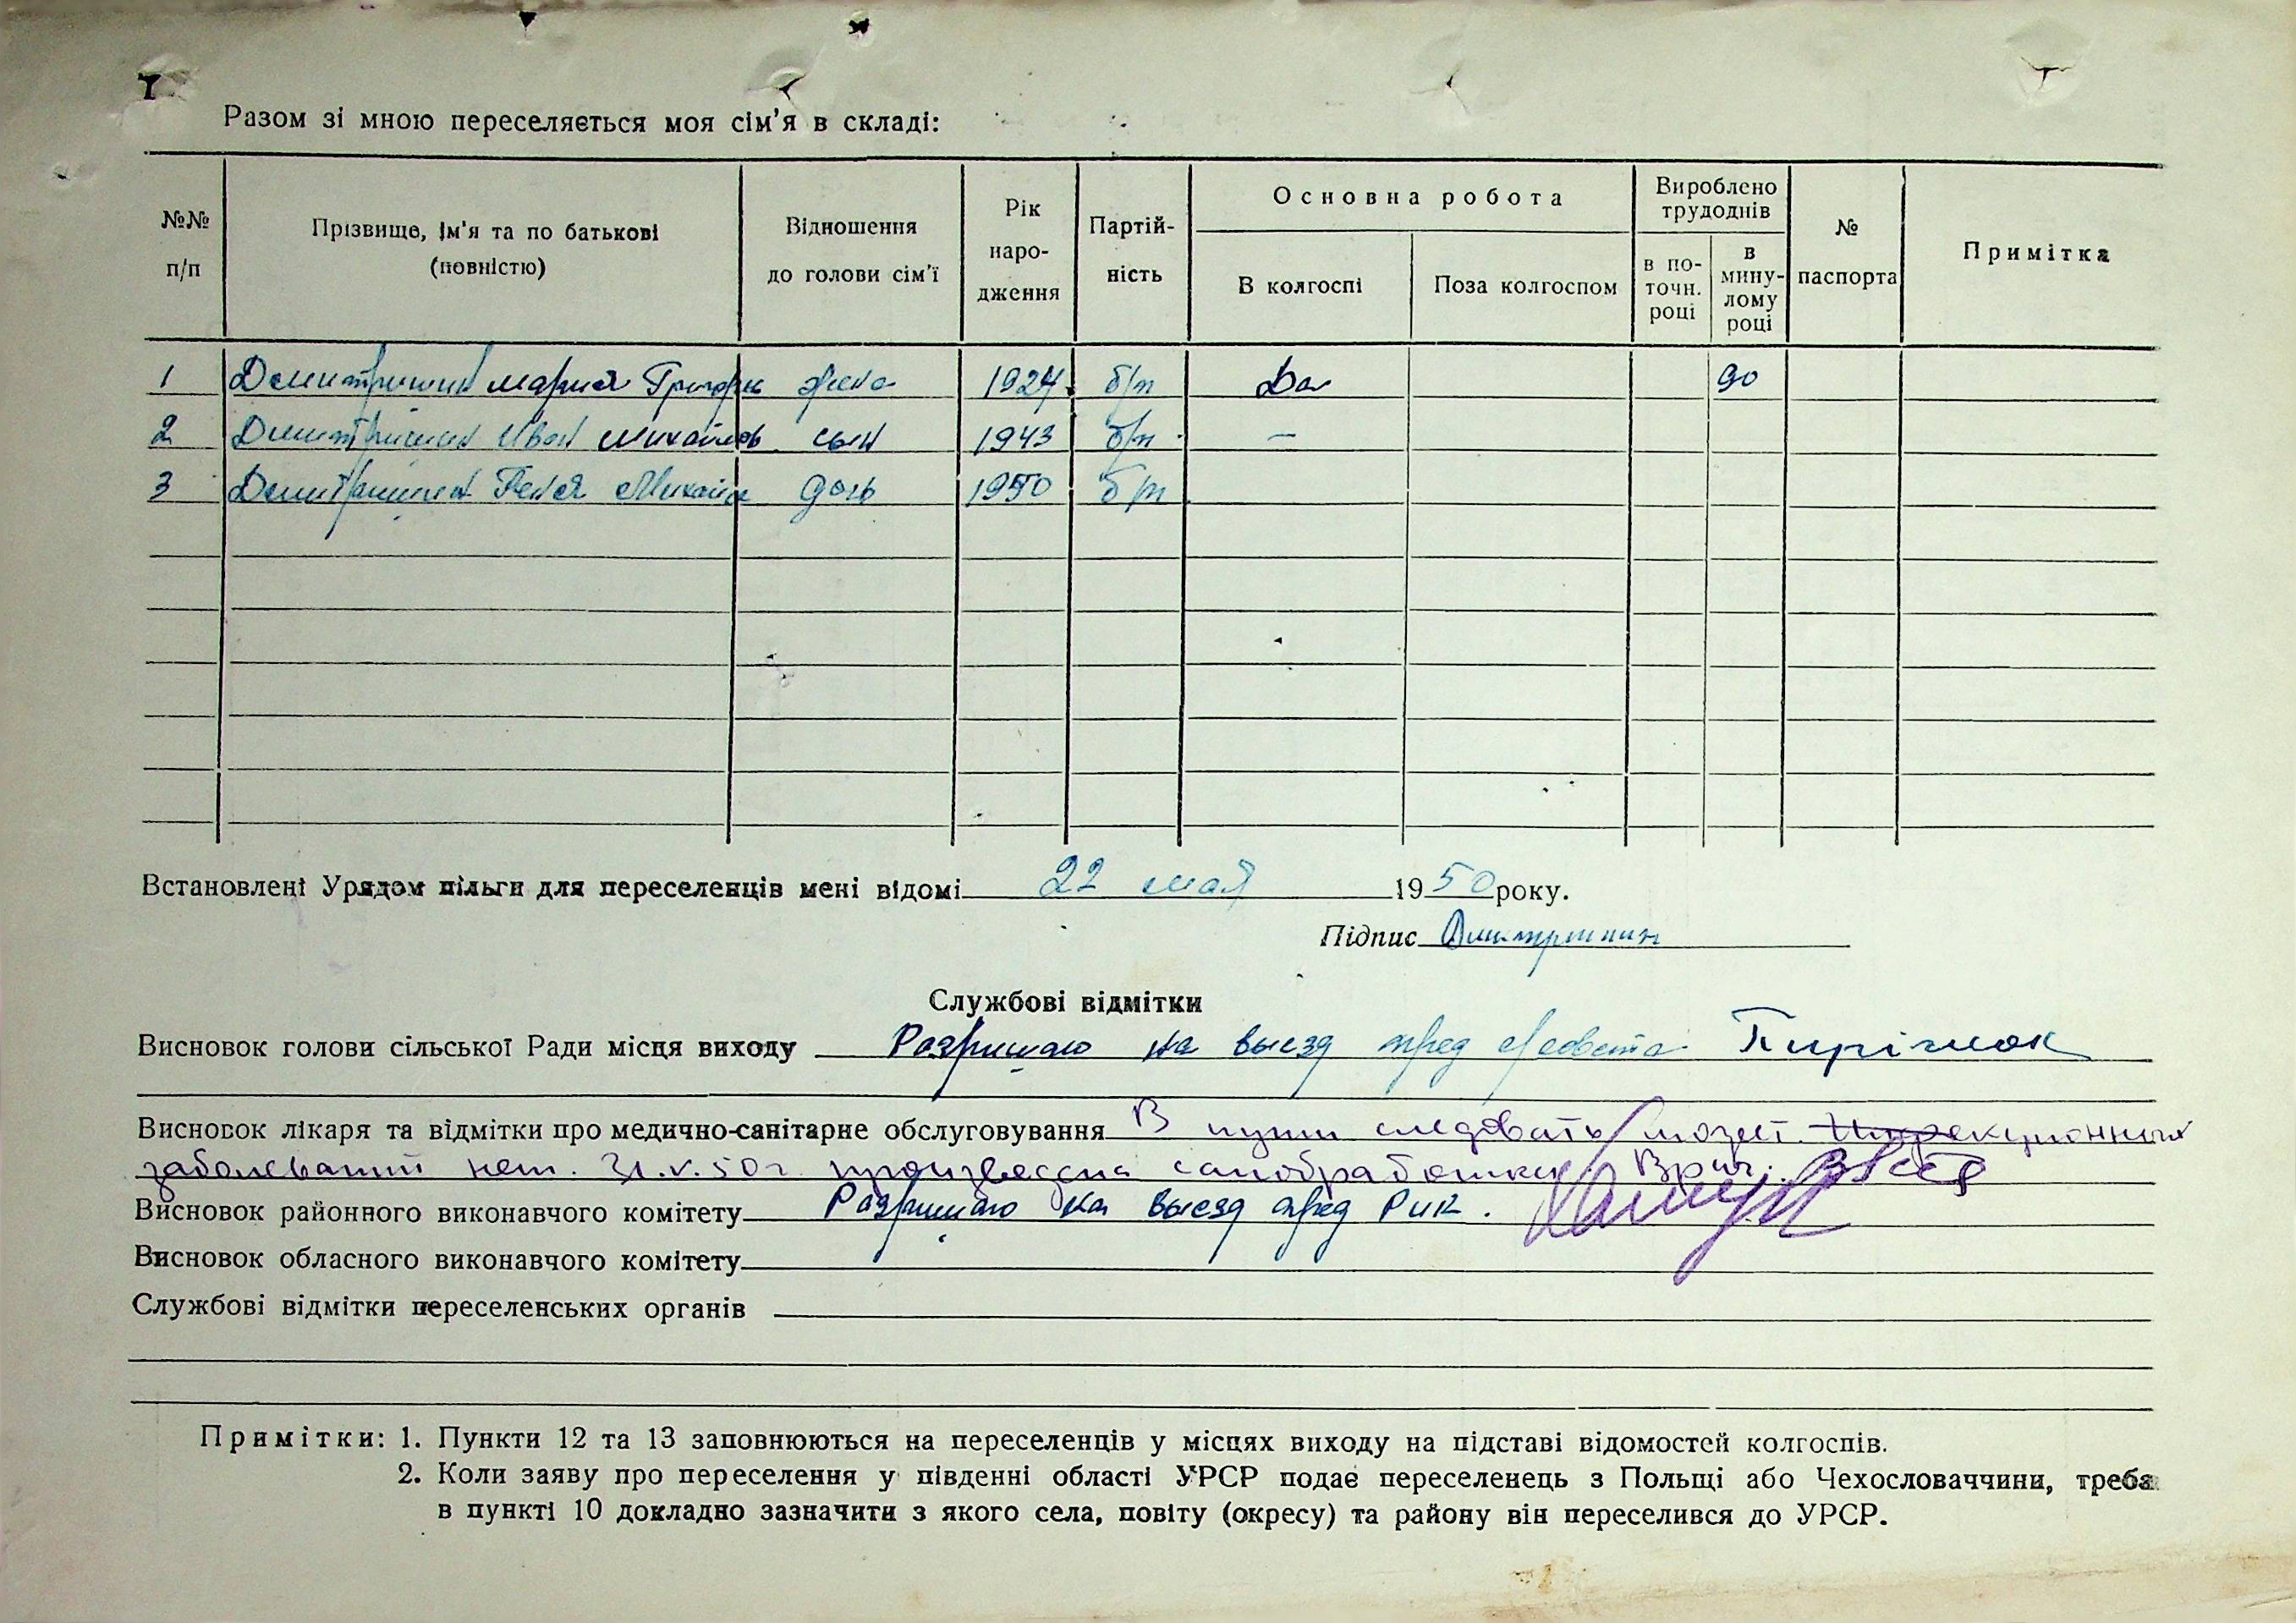 Разом зі мною переселяється моя сім'я в складі:
№№ п/п
Прізвище, ім'я та по батькові (повністю)
Відношення до голови сім'ї
Рік народження
Партійність
Основна робота
В колгоспі
Поза колгоспом
Вироблено трудоднів
в поточн. році
в минулому році
№ паспорта
Примітка
1 Демитришин Мария Григорь жена 1924 б/п Да 90
2 Димитришин Иван Михайлов сын 1943 б/п —
3 Демитришин Геня Михайл дочь 1950 б/п
Встановлені Урядом пільги для переселенців мені відомі 22 мая 1950 року.
Підпис Димитришин
Службові відмітки
Висновок голови сільської Ради місця виходу Розришаю на выезд пред с/совета
Висновок лікаря та відмітки про медично-санітарне обслуговування В пути следовать может. Инфекционных
заболеваний нет. 31.V.50 г. произведена санобработка Врач.
Висновок районного виконавчого комітету Разришаю на выезд пред Рик.
Висновок обласного виконавчого комітету
Службові відмітки переселенських органів
Примітки: 1. Пункти 12 та 13 заповнюються на переселенців у місцях виходу на підставі відомостей колгоспів.
2. Коли заяву про переселення у південні області УРСР подає переселенець з Польщі або Чехословаччини, треба
в пункті 10 докладно зазначити з якого села, повіту (окресу) та району він переселився до УРСР.